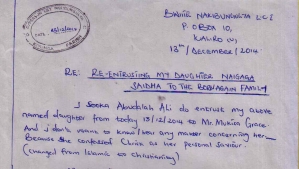 BWITE NAKIBUNGWTA LC I
P. O BOX 10,
KALIRO (U)
18th/December/2014
18/12/2014
RE: RE-ENTRUSTING MY DAUGHTER NAIGAGA
SAIDHA TO THE BORNAGAIN FAMILY
I Seeka Abudalah Ali do entrust my above
named daughter from today 18/12/2014 to Mr. Mukisa Grace.
And i don't want to know/hear any matter concerning her
Because she confessed Christ as her personal saviour.
(changed from Islamic to Christianity)